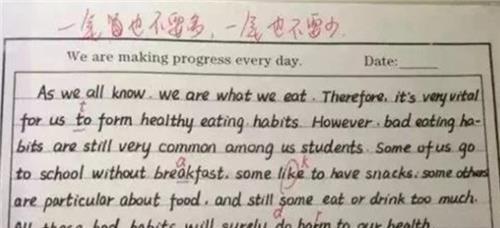 一 也不 多，一 也不 少.
We are making progress every day. Date:_____
As we all know, we are what we eat. Therefore, it's very vital
t
for us to form healthy eating habits. However, bad eating ha-
bits are still very common among us students. Some of us go
a k
to school without breakfast, some like to have snacks, some others
are particular about food, and still some eat or drink too much.
d r
All these bad habits will surely do harm to our health